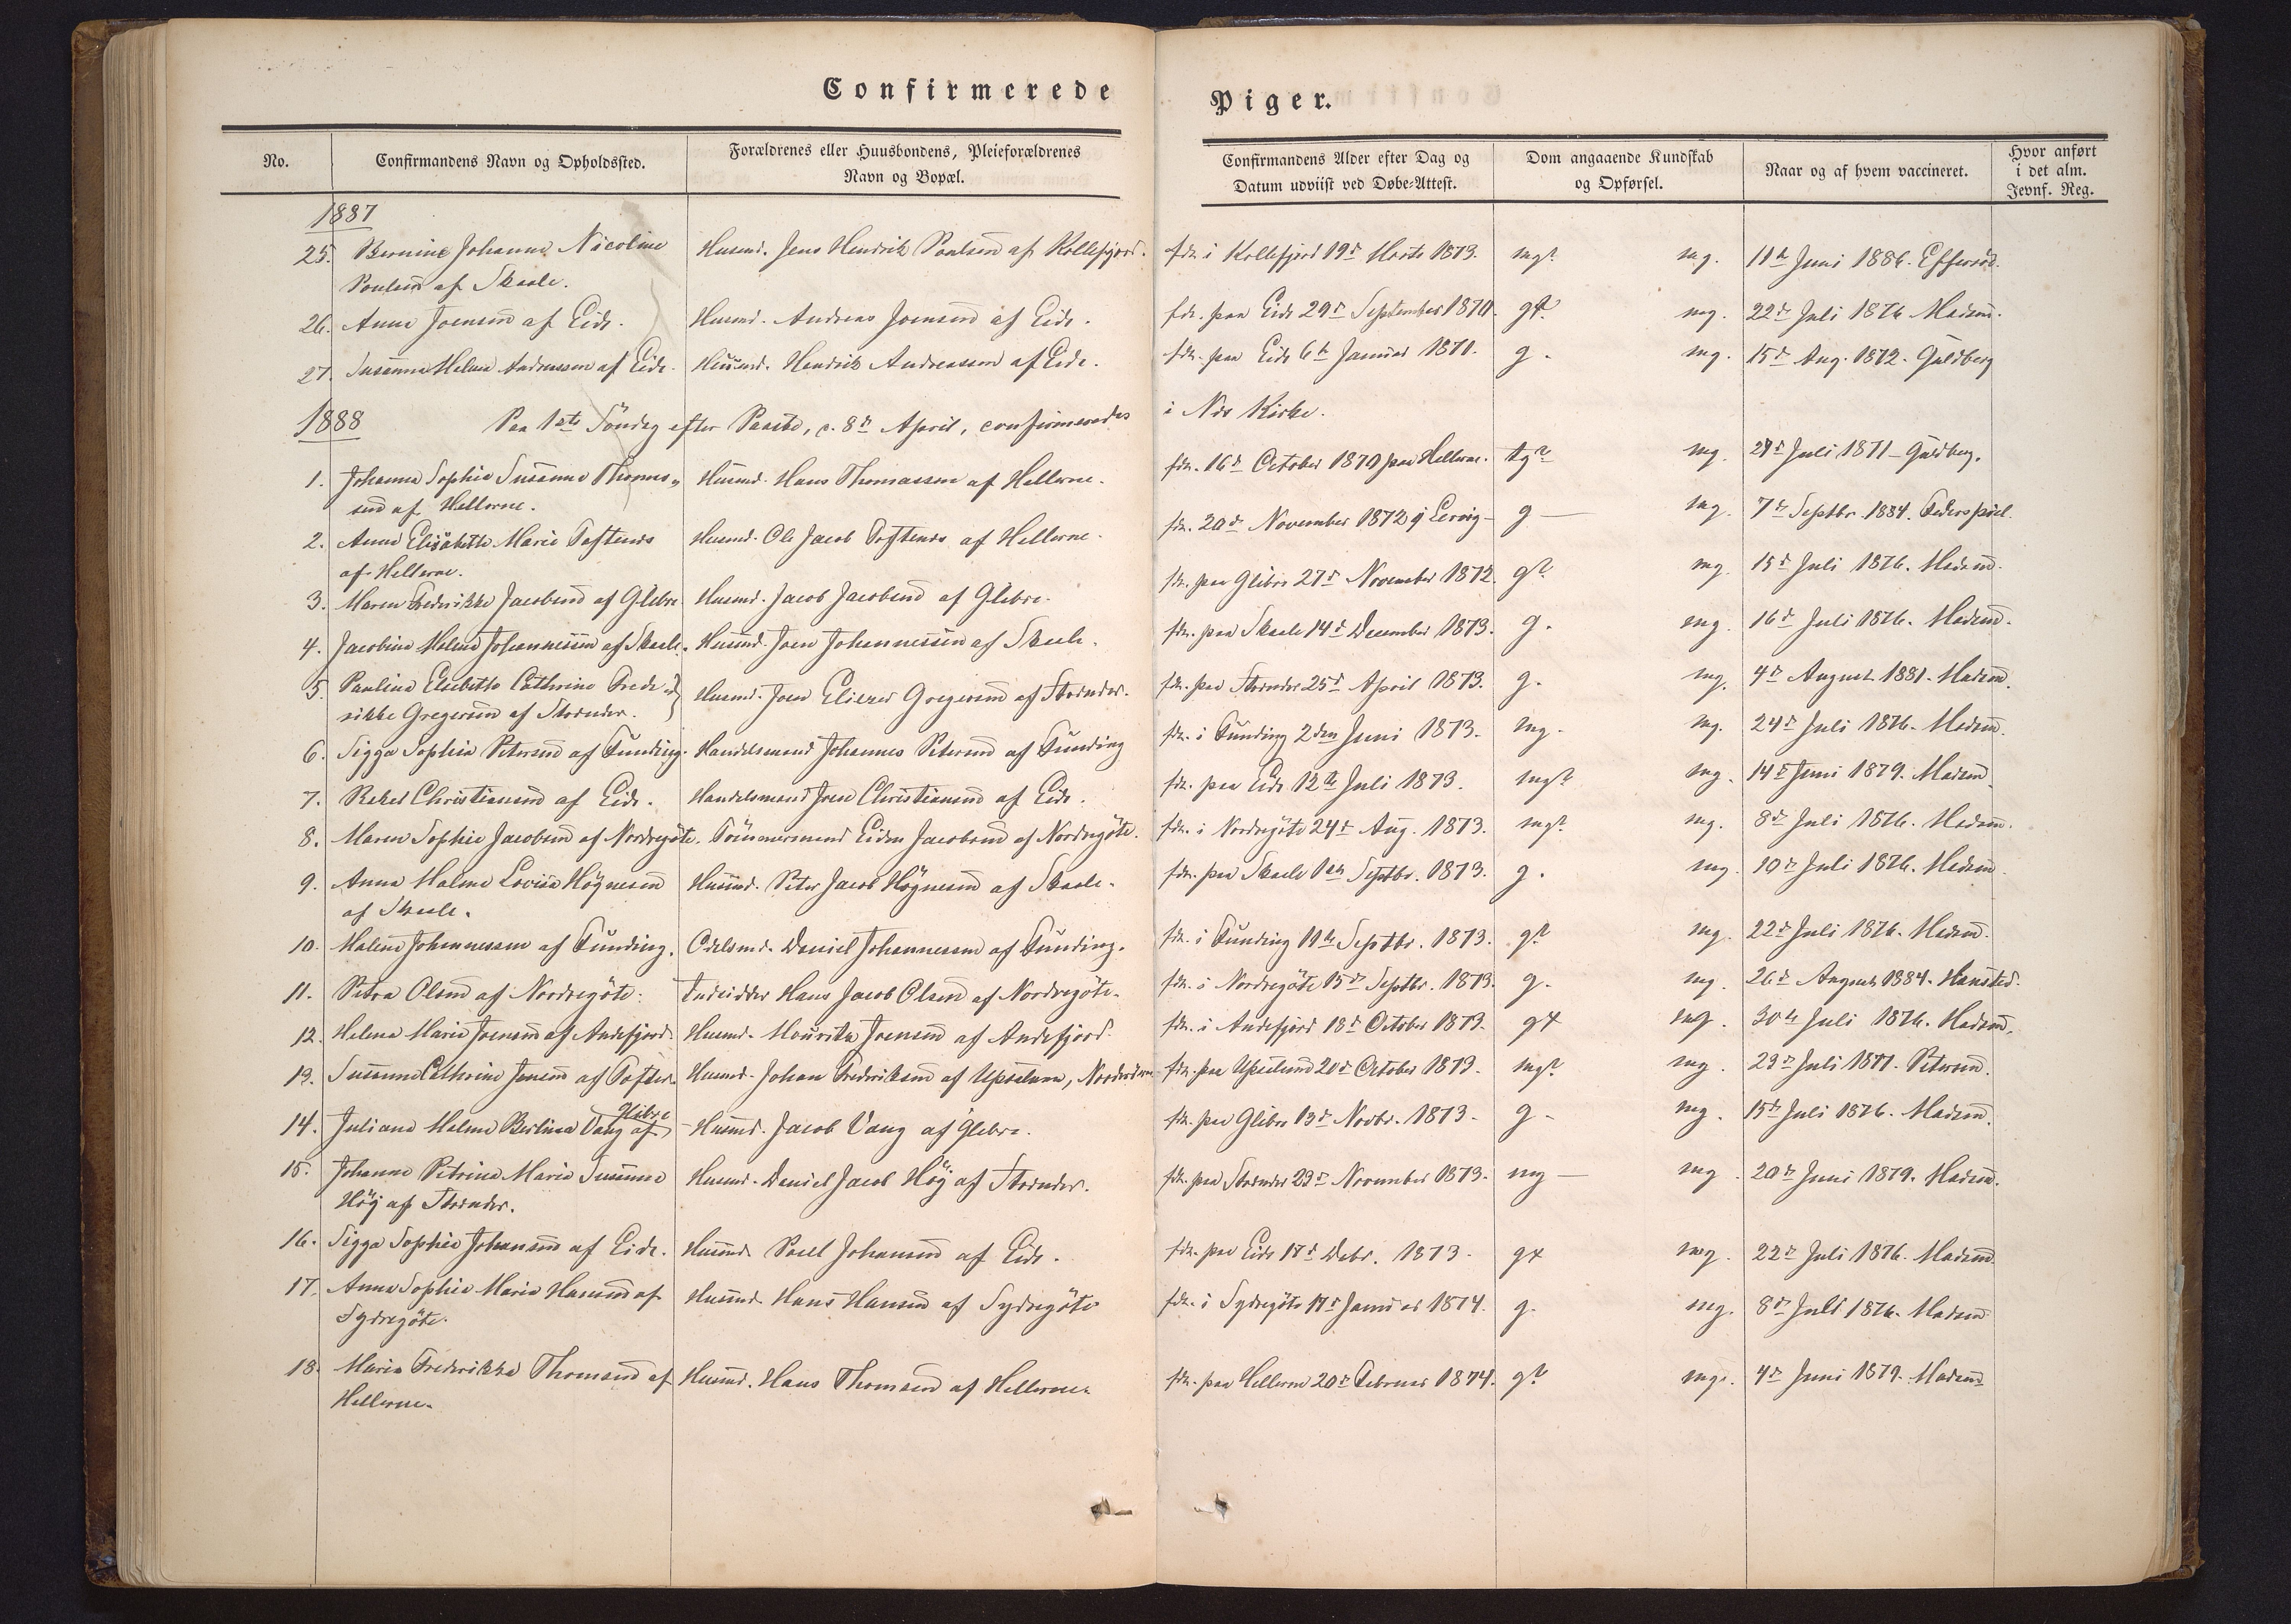 Confirmerede
Piger.
No.
Confirmandens Navn og Opholdssted.
Forældrenes eller Huusbondens, Pleieforældrenes
Navn og Bopæl.
Confirmandens Alder efter Dag og
Datum udviist ved Døbe-Attest.
Dom angaaende Kundskab
og Opførsel.
Naar og af hvem vaccineret.
Hvor anført
i det alm.
Jevnf. Reg.
1887
25. Johanne Nicoline Husmd. Jens Hendrik Poulsen af Kollefjord. fdt. i Kollefjord 19d Marts 1873. mg? mg. 11te Juni 1886. Effersöe.
Poulsen af Skaale.
26. Anne Joensen af Eide. Husmd. Andreas Joensen af Eide. fdt. paa Eide 29d September 1870. g mg. 22d Juli 1876 Madsen.
27. Susanna Helene Andreassen af Eide. Husmd. Hendrik Andreassen af Eide. fdt. paa Eide 6te Januar 1871. g. mg. 15d Aug. 1872. Guldberg
1888 Paa 1ste Söndag efter Paaske, d. 8d April, confirmeredes i Nds Kirke.
1. Johanne Sophie Susanne Thomas- Husmd. Hans Thomassen af Hellerne. fdt. 16d October 1870 paa Hellerne. tg? mg. Juli 1871 Guldberg.
sen af Hellerne.
2. Anne Elisabeth Marie Toftenes Husmd. Ole Jacob Toftenes af Hellerne. fdt. 20d November 1872 i Lervig g mg. 7d Septbr 1884. Federspiel.
af Hellerne.
3. Maren Fredrikke Jacobsen af Glibre Husmd. Jacob Jacobsen af Glibre. fdt. paa Glibre 27d November 1872. g? mg. 15d Juli 1876. Madsen.
4. Jacobine Malene Johannessen af Skaale. Husmd. Joen Johannessen af Skaale. fdt. paa Skaale 14d December 1873. g. mg. 16d Juli 1876. Madsen.
5. Pauline Elsebeth Cathrine Frede- Husmd. Joen Elieser Gregersen af Strender. fdt. paa Strender 25d April 1873. g. mg. 4d August 1881. Madsen.
rikke Gregersen af Strender.
6. Sigga Sophie Petersen af Funding. Handelsmand Johannes Petersen af Funding fdt. i Funding 2den Juni 1873. mg. mg. 24d Juli 1876. Madsen.
7. Rakel Christiansen af Eide. Handelsmand Joen Christiansen af Eide. fdt. paa Eide 12te Juli 1873. mg? mg. 14d Juni 1879. Madsen.
8. Maren Sophie Jacobsen af Nordregöte. Tömmermand Jacobsen af Nordregöte. fdt. i Nordregöte 24d Aug. 1873. mg? mg. 8d Juli 1876. Madsen.
9. Anna Malene Lovisa Högnesen Husmd. Peter Jacob Högnesen af Skaale. fdt. paa Skaale Septbr. 1873. g. mg. 19d Juli 1876. Madsen
af Skaale.
10. Malene Johannessen af Funding. Odelsmd. Daniel Johannessen af Funding. fdt. i Funding 11te Septbr. 1873. g? mg. 22d Juli 1876. Madsen.
11. Petra Olsen af Nordregöte. Indsidder Hans Jacob Olsen af Nordregöte. fdt. i Nordregöte 15d Septbr. 1873. g. mg. 26d August 1884. Hansted.
12. Helena Marie Joensen af Andefjord. Husmd. Mouritz Joensen af Andefjord. fdt. i Andefjord 18d October 1873. g+ mg. 30te Juli 1876. Madsen.
13. Susanne Cathrine Jensen af Toften. Husmd. Johan Fredriksen af fdt. paa 20d October 1873. mg? mg. 23d Juli Petersen.
14. Juliane Malene Berlina Vang af Glibre Husmd. Jacob Vang af Glibre. fdt. paa Glibre 13d Novbr. 1873. g. mg. 15d Juli 1876. Madsen.
15. Johanne Petrine Marie Susanne Husmd. Daniel Jacob Höj af Strender. fdt. paa Strender 23d November 1873. mg mg. 20d Juni 1879. Madsen.
Höj af Strender.
16. Sigga Sophie Johansen af Eide. Husmd. Poul Johansen af Eide. fdt. paa Eide 17d Debr. 1873. g+ mg. 22d Juli 1876. Madsen
17. Anna Sophie Maria Hansen af Husmd. Hans Hansen af Sydregöte fdt. i Sydregöte 17d Januar 1874. g. mg. 8d Juli 1876. Madsen
Sydregöte.
18. Maria Fredrikka Thomsen af Husmd. Hans Thomsen af Hellerne. fdt. paa Hellerne 20d Februar 1874. g? mg. 4d Juni 1879. Madsen
Hellerne.